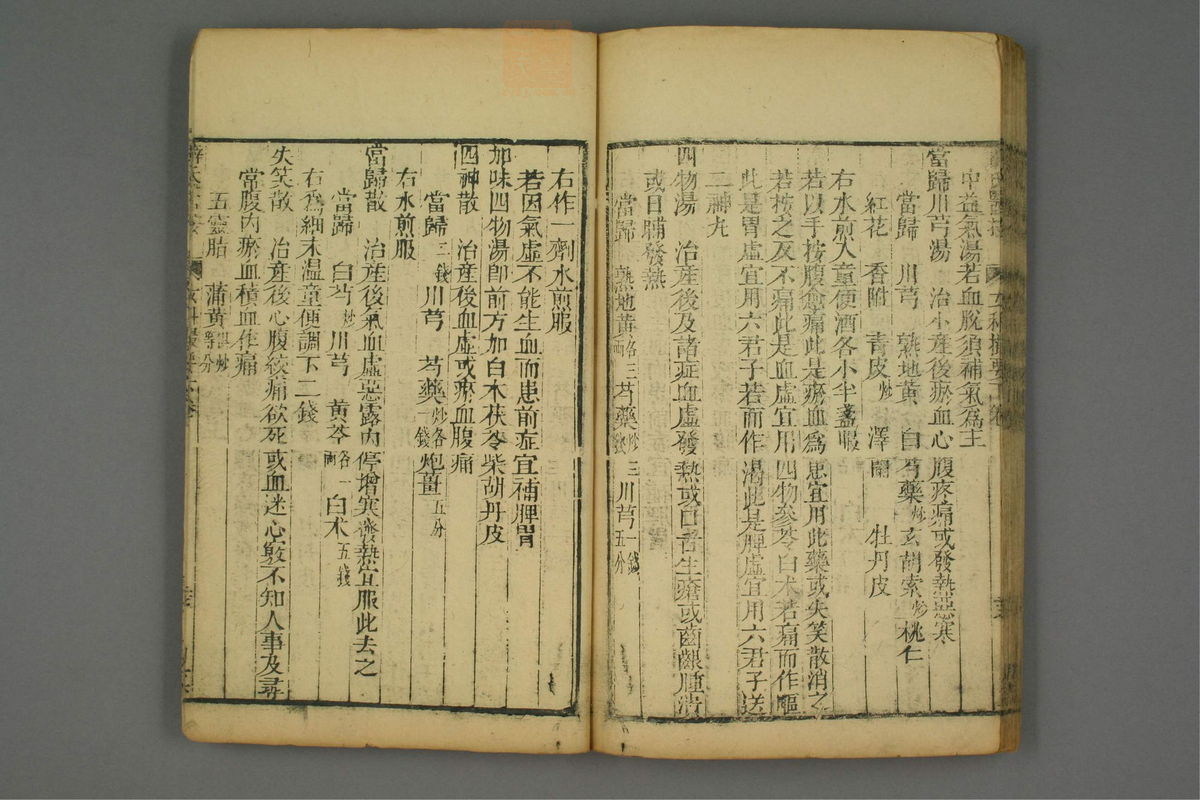 中益氣湯若血脫須補氣爲主
當歸川芎湯　治小産後瘀血心腹疼痛或發熱惡寒
當歸　川芎　熟地黃　白芍藥炒　玄胡索炒　桃仁
紅花　香附　靑皮炒　澤蘭　牡丹皮
右水煎入童便酒各小半盞服
若以手按腹愈痛此是瘀血爲患宜用此藥或失笑散消之
若按之反不痛此是血虛宜用四物參苓白朮若痛而作嘔
此是胃虛宜用六君子若而作瀉此是脾虛宜用六君子送
二神丸
四物湯　治産後及諸症血虛發熱或口舌生瘡或齒齦腫潰
或日晡發熱
當歸　熟地黃各三兩　芍藥炒二錢　川芎一錢五分
右作一劑水煎服
若因氣虛不能生血而患前症宜補脾胃
加味四物湯卽前方加白朮茯苓柴胡丹皮
四神散　治産後血虛或瘀血腹痛
當歸三錢　川芎　芍藥炒各一錢　炮薑五分
右水煎服
當歸散　治産後氣血虛惡露內停增寒發熱宜服此去之
當歸　白芍炒　川芎　黃芩各一兩　白朮五錢
右爲細末溫童便調下二錢
失笑散　治産後心腹絞痛欲死或血迷心竅不知人事及尋
常腹內瘀血積血作痛
五靈脂　蒲黃俱炒等分